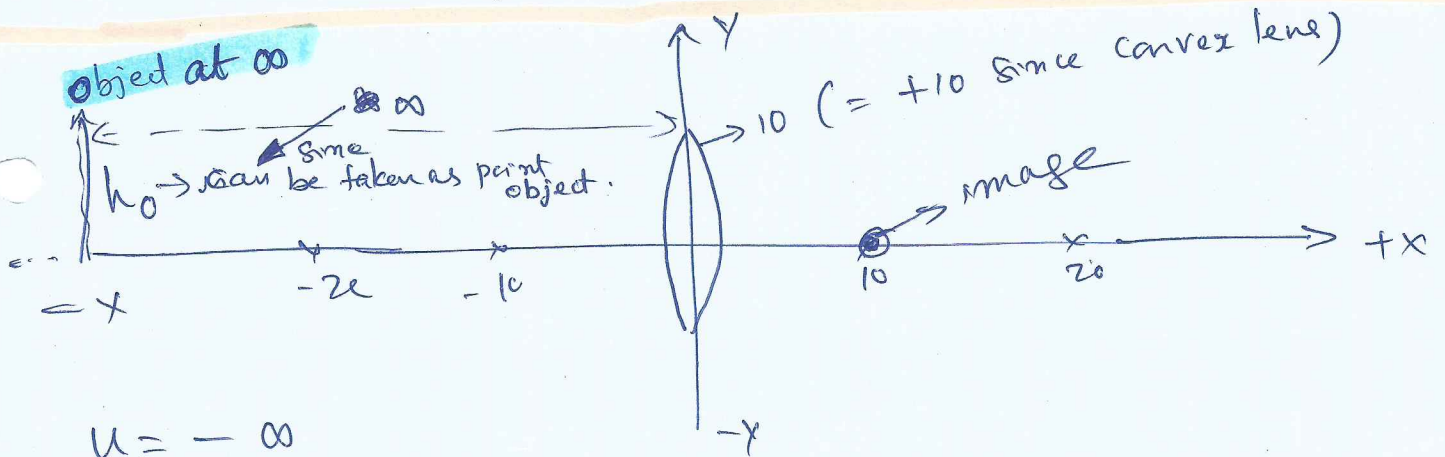 object at ∞
Y
∞
10 (= +10 since convex lens)
since
h₀ → can be taken as point
object.
image
-20
-10
10
20
+X
-X
u = - ∞
-Y